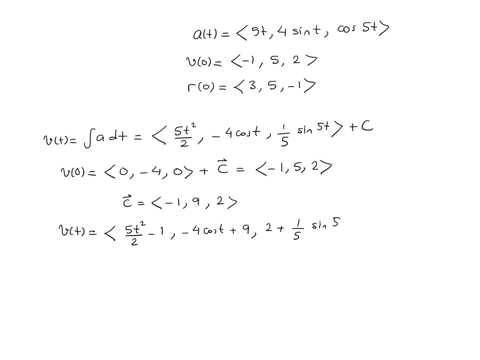 a(t) = < 5t, 4 sin t, cos 5t >
v(0) = < -1, 5, 2 >
r(0) = < 3, 5, -1 >
v(t) = ∫ a dt = < 5t²/2, -4 cos t, 1/5 sin 5t > + C
v(0) = < 0, -4, 0 > + C⃗ = < -1, 5, 2 >
C⃗ = < -1, 9, 2 >
v(t) = < 5t²/2 - 1, -4 cos t + 9, 2 + 1/5 sin 5